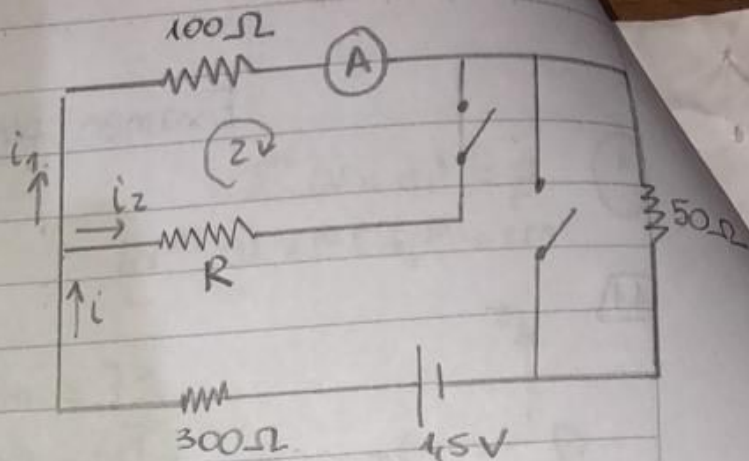 100Ω
A
i1
2v
i2
50Ω
R
i
300Ω
1,5V